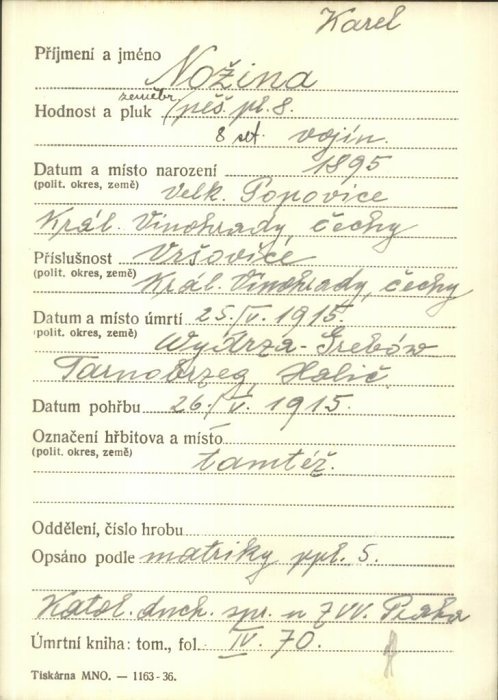 Karel
Příjmení a jméno Nožina
zeměbr.
Hodnost a pluk pěš. pl. 8.
8 set. vojín.
Datum a místo narození 1895
(polit. okres, země) Velk. Popovice
Král. Vinohrady, čechy
Příslušnost Vršovice,
(polit. okres, země) Král. Vinohrady, čechy
Datum a místo úmrtí 25./V. 1915.
(polit. okres, země) Wydrza-Grebów
Tarnobrzeg, Halič
Datum pohřbu 26./V. 1915.
Označení hřbitova a místo
(polit. okres, země) tamtéž.
Oddělení, číslo hrobu
Opsáno podle matriky ppl. 5.
Katol. duch. spr. u ZVV. Praha
Úmrtní kniha: tom., fol. IV. 70.
Tiskárna MNO. — 1163-36.